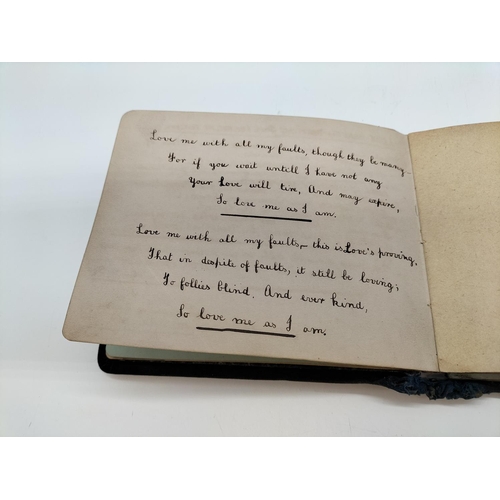 Love me with all my faults, though they be many—
For if you wait untill I have not any
Your Love will tire, And may expire,
So love me as I am.
Love me with all my faults,— this is Love's proving,
That in despite of faults, it still be loving;
To follies blind. And ever kind,
So love me as I am.